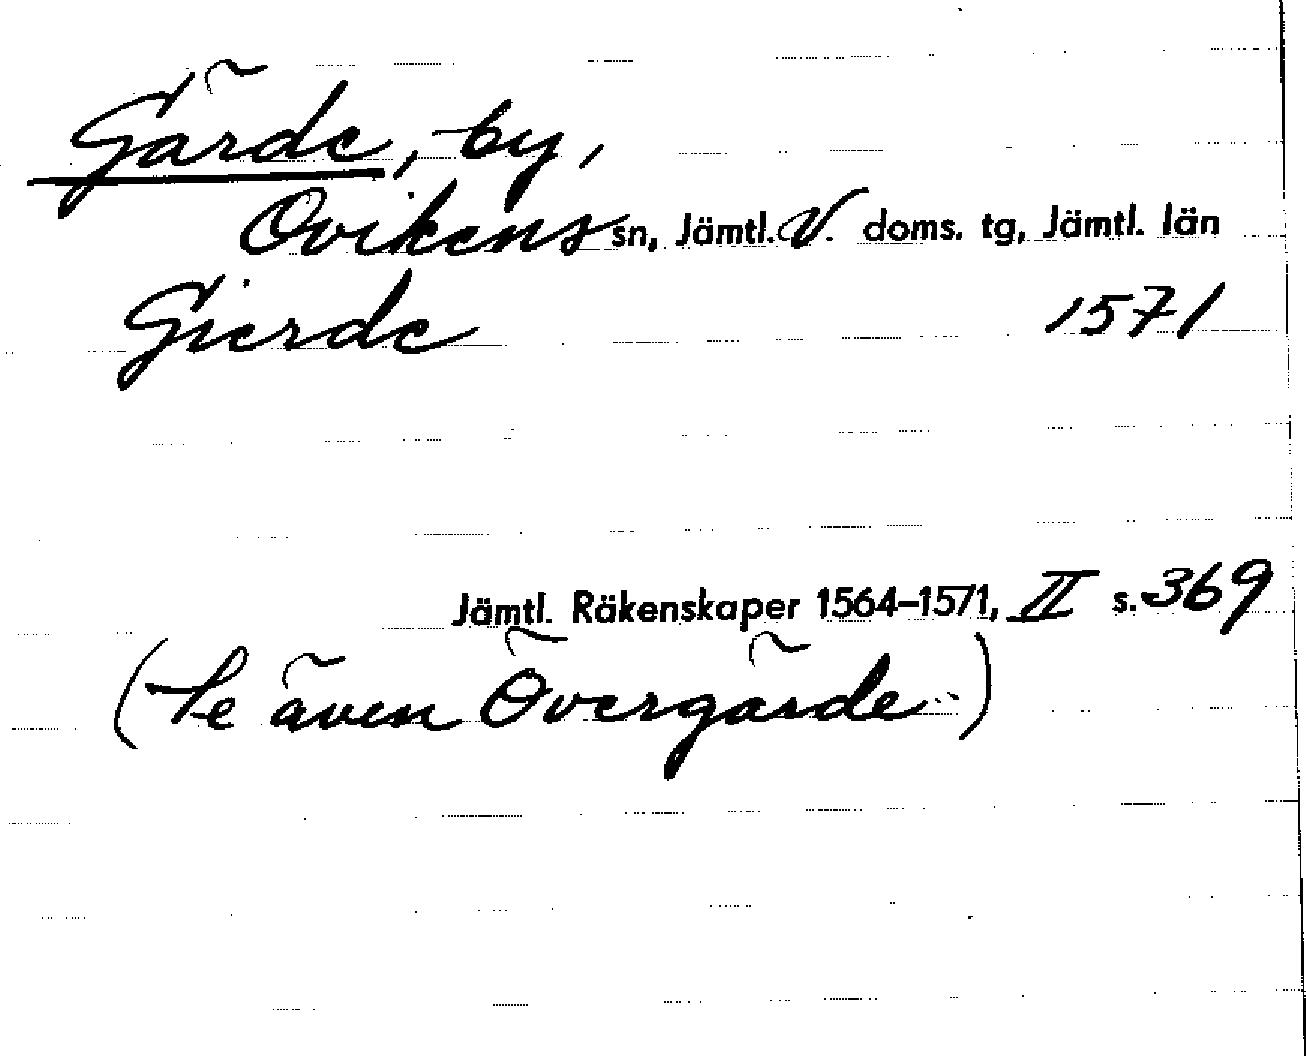 Gärde, by,
Ovikens sn, Jämtl. V. doms. tg, Jämtl. län
Gierde 1571
Jämtl. Räkenskaper 1564–1571, II s. 369
(Se även Övergärde.)